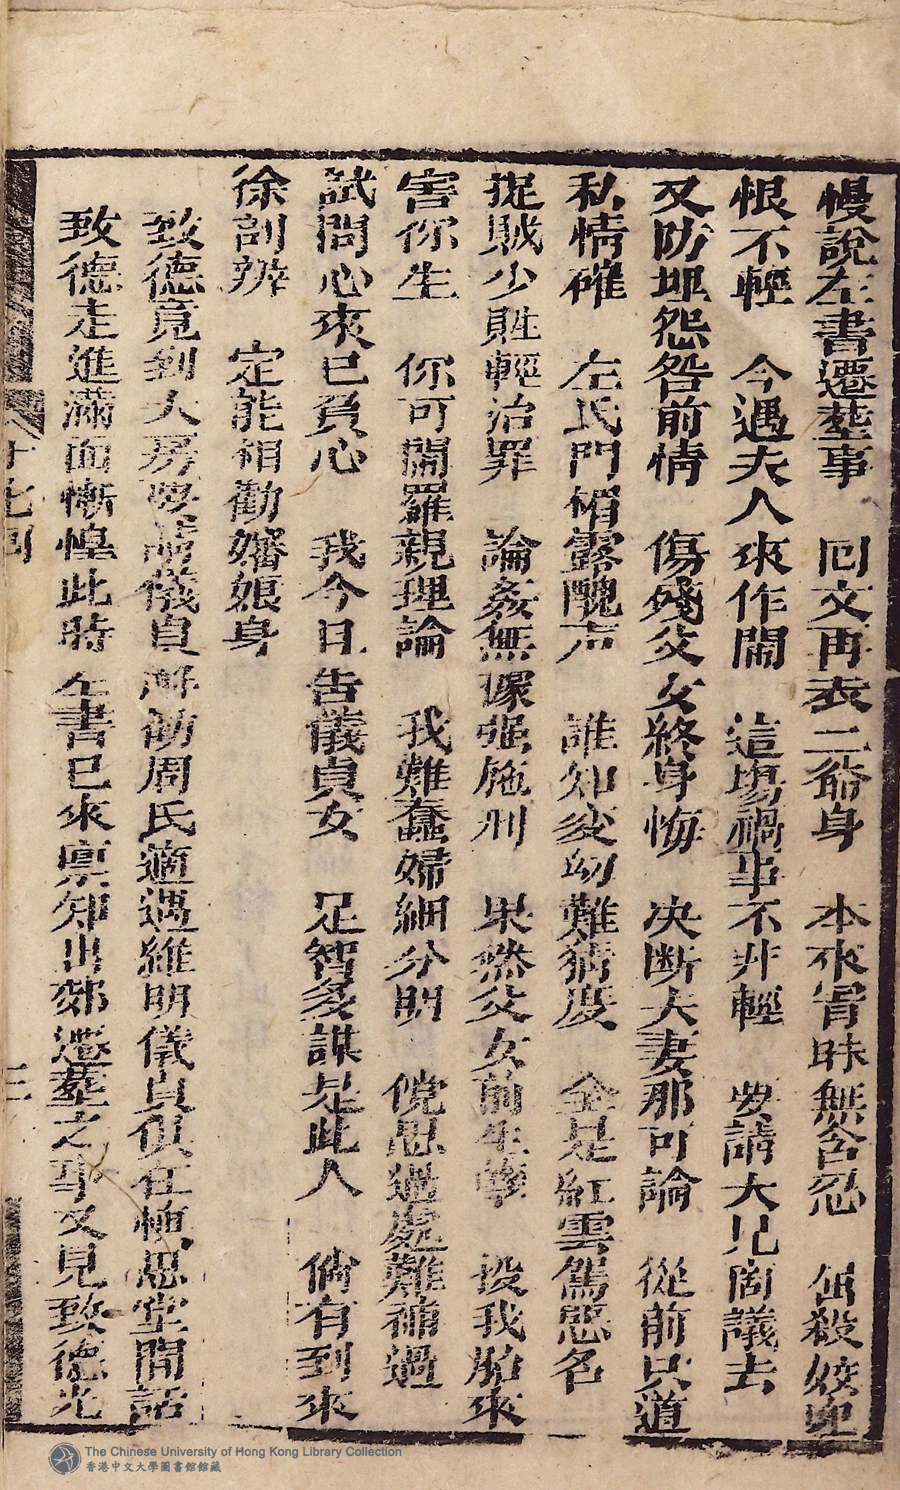 慢說左書遷塟事　回文再表二爺身　本來胃昧無含忍　屈殺姣兒
恨不輕　今遇夫人來作閙　這場禍事不非輕　要請大兄商議去
又防埋怨咎前情　傷殘父女終身悔　决断夫妻那可論　從前只道
私情確　左氏門楣露醜声　誰知变幼難猜度　全是紅雲駕惡名
捉賊少賍輕治罪　論姦無㨿强施刑　果然父女前生孽　投我胎來
害你生　你可閙羅親理論　我難蠢婦細分明　傥思過處難補過
試問心來已負心　我今日告儀貞女　足智多謀是此人　倘有到來
徐剖辨　定能相勸嬸娘身
致德竟到大房要請儀貞解勸周氏適遇維明儀貞俱在慎思堂閒話
致德走進滿面慚惶此時左書已來禀知出郊遷塟之事又見致德光
十七回
三
The Chinese University of Hong Kong Library Collection
香港中文大學圖書館館藏